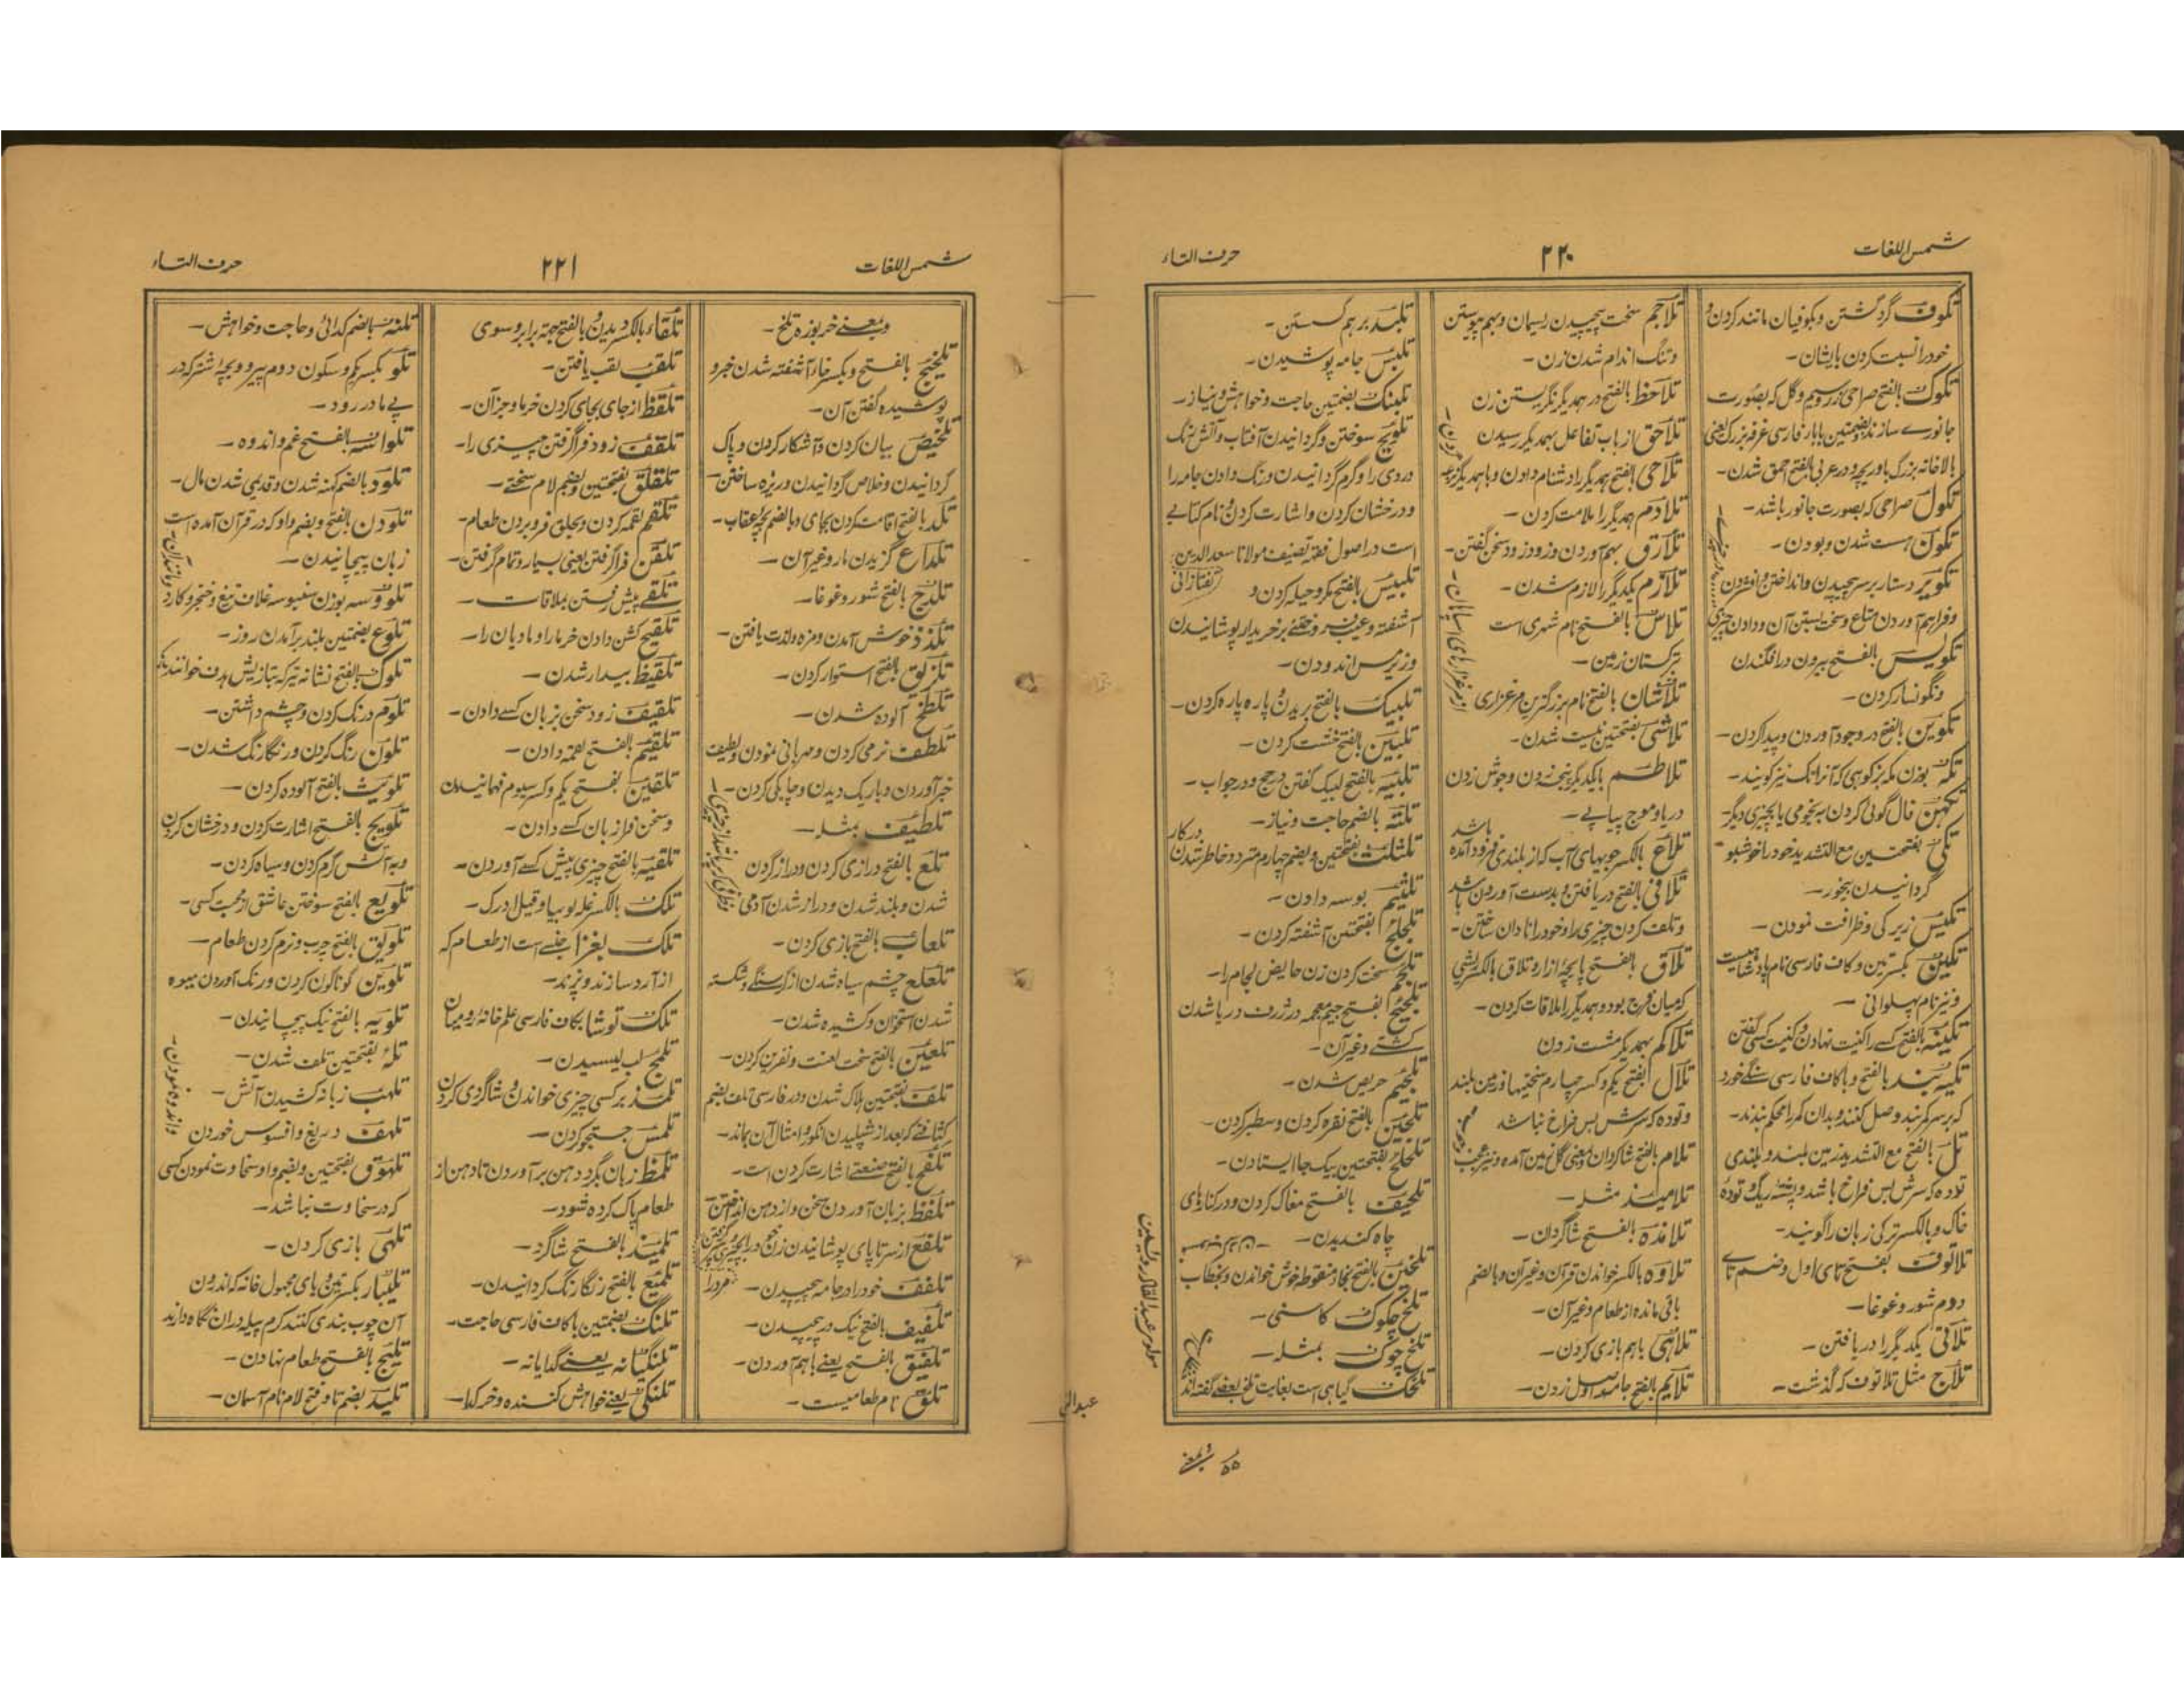 شمس اللغات
۲۲۰
حرف التاء
تکوف گرد گشتن و بکوفیان مانند کردن و
خود را نسبت کردن بایشان-
تکوک بالفتح صراحی زر و سیم و گل که بصورت
جانورے سازند و بضمتین بابار فارسی غرفه بزرگ یعنی
بالاخانه بزرگ باوریچه و در عربی بالفتح احمق شدن-
تکول صراحی که بصورت جانور باشد-
تکون هست شدن و بودن-
تکویر دستار بر سر پیچیدن و انداختن و افشردن
و فراهم آوردن متاع و سخت بستن آن و دادن چیزی
تکویس بالفتح بیرون در افگندن
و نگونسار کردن-
تکوین بالفتح در وجود آوردن و پیدا کردن-
تکه بوزن مکه بز کوهی که آنرا تک نیز گویند-
تکهن فال گوئی کردن به نجومی یا بچیزی دیگر-
تکی بفتحتین مع التشدید خود را خوشبو
گردانیدن ببخور-
تکیس زیرکی و ظرافت نمودن-
تکین بکسرتین و کاف فارسی نام پادشاهیست
و نیز نام پهلوانی-
تکینه بالفتح کسے را کنیت نهادن و کنیت کسی گفتن
تکیه بند بالفتح و با کاف فارسی سنگے خورد
که بر سر کمربند وصل کنند و بدان کمر را محکم بندند-
تل بالفتح مع التشدید زمین بلند و بلندی
توده که سرش بس فراخ باشد و پشته ریگ و تودهٔ
خاک و بالکسر ترکی زبان را گویند-
تلاتوف بفتح تای اول و ضم تاے
دوم شور و غوغا-
تلاقی یکدیگر را دریافتن-
تلاج مثل تلاتوف که گذشت-
تلاجم سخت پیچیدن ریسمان و بهم پیوستن
و تنگ اندام شدن زن-
تلاحظ بالفتح در همدیگر نگریستن زن
تلاحق از باب تفاعل بهمدیگر رسیدن
تلاحی بالفتح همدیگر را دشنام دادن و باهمدیگر نزاع
تلادم همدیگر را ملامت کردن-
تلارق بهم آوردن و زود زود سخن گفتن-
تلازم یکدیگر را لازم شدن-
تلاس بالفتح نام شهری است
ترکستان زمین-
تلاشان بالفتح نام بزرگترین مرغزاری
تلاشی بفتحتین نیست شدن-
تلاطم بایکدیگر پنجه زدن و جوش زدن
دریا و موج پیاپے-
تلاع بالکسر جویهای آب که از بلندی فرود آمده باشد
تلافی بالفتح دریافتن و بدست آوردن
و تلف کردن چیزی را و خود را نادان ساختن-
تلاق بالفتح پاچهٔ ازار و تلاق بالکسر پشی
که میان فرج بود و همدیگر را ملاقات کردن-
تلاکم بهمدیگر مشت زدن
تلال بالفتح یکم و کسر چهارم سختیها و زمین بلند
و توده که سرش بس فراخ نباشد
تلام بالفتح شاگردان و بمعنی گل زمین آمده
تلامیذ مثله-
تلامذه بالفتح شاگردان-
تلاوه بالکسر خواندن قرآن و غیر آن و بالضم
باقی مانده از طعام و غیر آن-
تلاهی باهم بازی کردن-
تلایم بالفتح جامه اول زدن-
تلبد بر هم گسستن-
تلبس جامه پوشیدن-
تلبنک بضمتین حاجت و خواهش و نیاز-
تلویح سوختن و گردانیدن آفتاب و آتش رنگ
در روی را و گرم گردانیدن و رنگ دادن جامه را
و درخشان کردن و اشارت کردن و نام کتابے
است در اصول فقه تصنیف مولانا سعد الدین تفتازانی
تلبیس بالفتح مکر و حیله کردن و
آشفته و عیب خیر و خفتے بر خریدار پوشانیدن
و زیر مس اندودن-
تلبیک بالفتح بریدن و پاره پاره کردن-
تلبین بالفتح خشت کردن-
تلبیه بالفتح لبیک گفتن در حج و در جواب-
تلته بالضم حاجت و نیاز-
تلثلث بفتحتین و بضم چهارم متردد خاطر شدن در کار
تلثیم بوسه دادن-
تلجلج بفتحتین آشفته کردن-
تلجم سخت کردن زن حایض لجام را-
تلجیج بالفتح جیم معجمه در ژرف دریا شدن
کشتے و غیر آن-
تلجیم حریص شدن-
تلجین بالفتح نقره کردن و سطبر کردن-
تلحلح بفتحتین بیک جا ایستادن-
تلحیف بالفتح مغاک کردن و در کنارهای
چاه کندیدن-
تلخین بالفتح بخاء منقوطه خوش خواندن و بخطاب
تلخ جکوک کاسنی-
تلخ چوک بمثله-
تلخک گیاهی است بغایت تلخ بعضے گفته اند
مولوی عبدالقادر
۵۵ و بمعنے
شمس اللغات
۲۲۱
حرف التاء
و بمعنے خربوزه تلخ-
تلخیج بالفتح و بکسر خا آشفته شدن خبر و
پوشیده گفتن آن-
تلخیص بیان کردن و آشکار کردن و پاک
گردانیدن و خلاص گردانیدن و ریزه ساختن-
تلد بالفتح اقامت کردن بجای و بالضم بچهٔ عقاب-
تلداع گزیدن مار و غیر آن-
تلدج بالفتح شور و غوغا-
تلذذ خوش آمدن و مزه و لذت یافتن-
تلزیق بالفتح استوار کردن-
تلطخ آلوده شدن-
تلطف نرمی کردن و مهربانی نمودن و لطیف
خبر آوردن و باریک دیدن و چاپکی کردن-
تلطیف بمثله-
تلع بالفتح درازی کردن و دراز گردن
شدن و بلند شدن و دراز شدن آدمی
تلعاب بالفتح بازی کردن-
تلعلع چشم سیاه شدن از گرسنگے و شکسته
شدن استخوان و کشیده شدن-
تلعین بالفتح سخت لعنت و نفرین کردن-
تلف بفتحتین هلاک شدن و در فارسی تلف بضم
کثافتے که بعد از شپلیدن انگور و امثال آن بماند-
تلفح بالفتح صنعتے اشارت کردن است-
تلفظ بزبان آوردن سخن و از دهن انداختن
تلفع از سر تا پای پوشانیدن زن خود را بچیزی
تلفف خود را در جامه پیچیدن-
تلفیف بالفتح نیک در پیچیدن-
تلفیق بالفتح یعنے باهم آوردن-
تلق نام طعامیست-
تلقاء بالکسر دیدن و بالفتح جهة برابر و سوی
تلقب لقب یافتن-
تلقط از جای بجای کردن خرما و جز آن-
تلقف زود فرا گرفتن چیزی را-
تلقلق بفتحتین و بضم لام سختے-
تلقم لقمه کردن و بحلق فرو بردن طعام-
تلقن فرا گرفتن یعنی بسیار و تمام گرفتن-
تلقے پیش رفتن بملاقات-
تلقیح گشن دادن خرما را و مادیان را-
تلقیظ بیدار شدن-
تلقیف زود سخن بزبان کسے دادن-
تلقیم بالفتح لقمه دادن-
تلقین بفتح یکم و کسر سیوم فهمانیدن
و سخن فرا زبان کسے دادن-
تلقیه بالفتح چیزی پیش کسے آوردن-
تلک بالکسر غله لوبیا و قیل ادرک-
تلک بغزا جنسے است از طعام که
از آرد سازند و پزند-
تلک توشا بکاف فارسی علم خانهٔ رومیان
تلمج لب لیسیدن-
تلمذ بر کسی چیزی خواندن و شاگردی کردن
تلمس جستجو کردن-
تلمظ زبان گرد دهن بر آوردن تا دهن از
طعام پاک کرده شود-
تلمیذ بالفتح شاگرد-
تلمیع بالفتح رنگارنگ گردانیدن-
تلنگ بضمتین با کاف فارسی حاجت-
تلنگیانه یعنے گدایانه-
تلنگی یعنے خواهش کننده و خر گدا-
تلنه بالضم گدائی و حاجت و خواهش-
تلو بکسر یکم و سکون دوم پیرو و بچهٔ شتر که در
پے مادر رود-
تلواسه بالفتح غم و اندوه-
تلود بالضم کهنه شدن و قدیمی شدن مال-
تلودن بالفتح و بضم واو که در قرآن آمده است
زبان پیچانیدن-
تلوسه بوزن سنبوسه غلاف تیغ و خنجر و کارد و مانند آن-
تلوع بضمتین بلند بر آمدن روز-
تلوک بالفتح نشانه تیر که بتازیش هدف خوانند
تلوم درنگ کردن و چشم داشتن-
تلون رنگ کردن و رنگارنگ شدن-
تلویث بالفتح آلوده کردن-
تلویح بالفتح اشارت کردن و درخشان کردن
و به آتش گرم کردن و سیاه کردن-
تلویع بالفتح سوختن عاشق از محبت کسی-
تلویق بالفتح چرب و نرم کردن طعام-
تلوین گوناگون کردن و رنگ آوردن میوه
تلویه بالفتح نیک پیچانیدن-
تله بفتحتین تلف شدن-
تلهب زبانه کشیدن آتش-
تلهف دریغ و افسوس خوردن و اندوه نمودن-
تلهوق بفتحتین و بضم واو سخاوت نمودن کسی
که در سخاوت نباشد-
تلهی بازی کردن-
تلیبار بکسرتین و یای مجهول خانه که اندرون
آن چوب بندی کنند کرم پیله در ان نگاه دارند
تلیج بالفتح طعام نهادن-
تلید بضم تا و فتح لام نام آسمان-